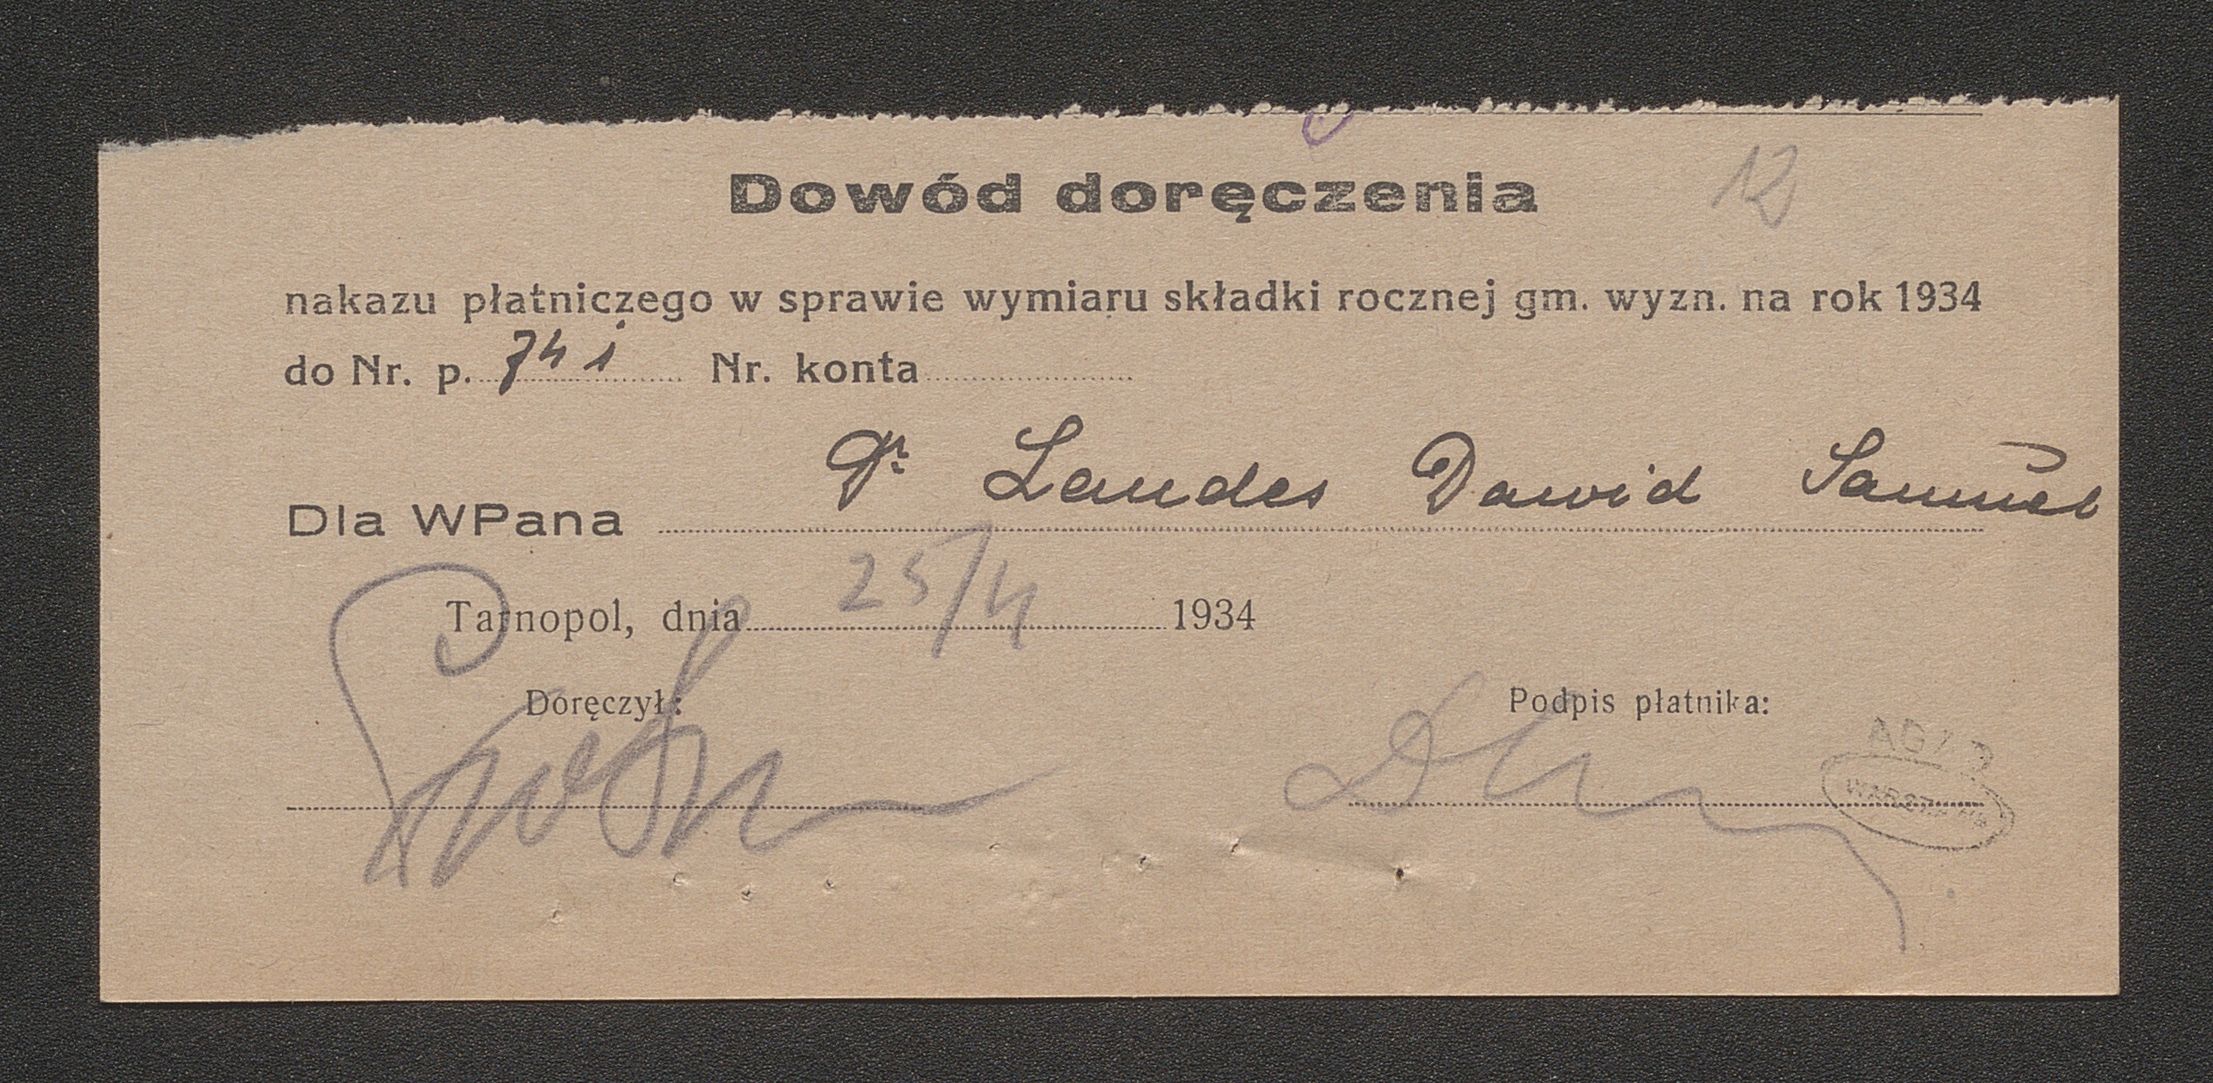 12
Dowód doręczenia
nakazu płatniczego w sprawie wymiaru składki rocznej gm. wyzn. na rok 1934
do Nr. p. 741 Nr. konta
Dla WPana Dr Landes Dawid Samuel
Tarnopol, dnia 25/4 1934
Doręczył: Podpis płatnika:
WARSZAWA